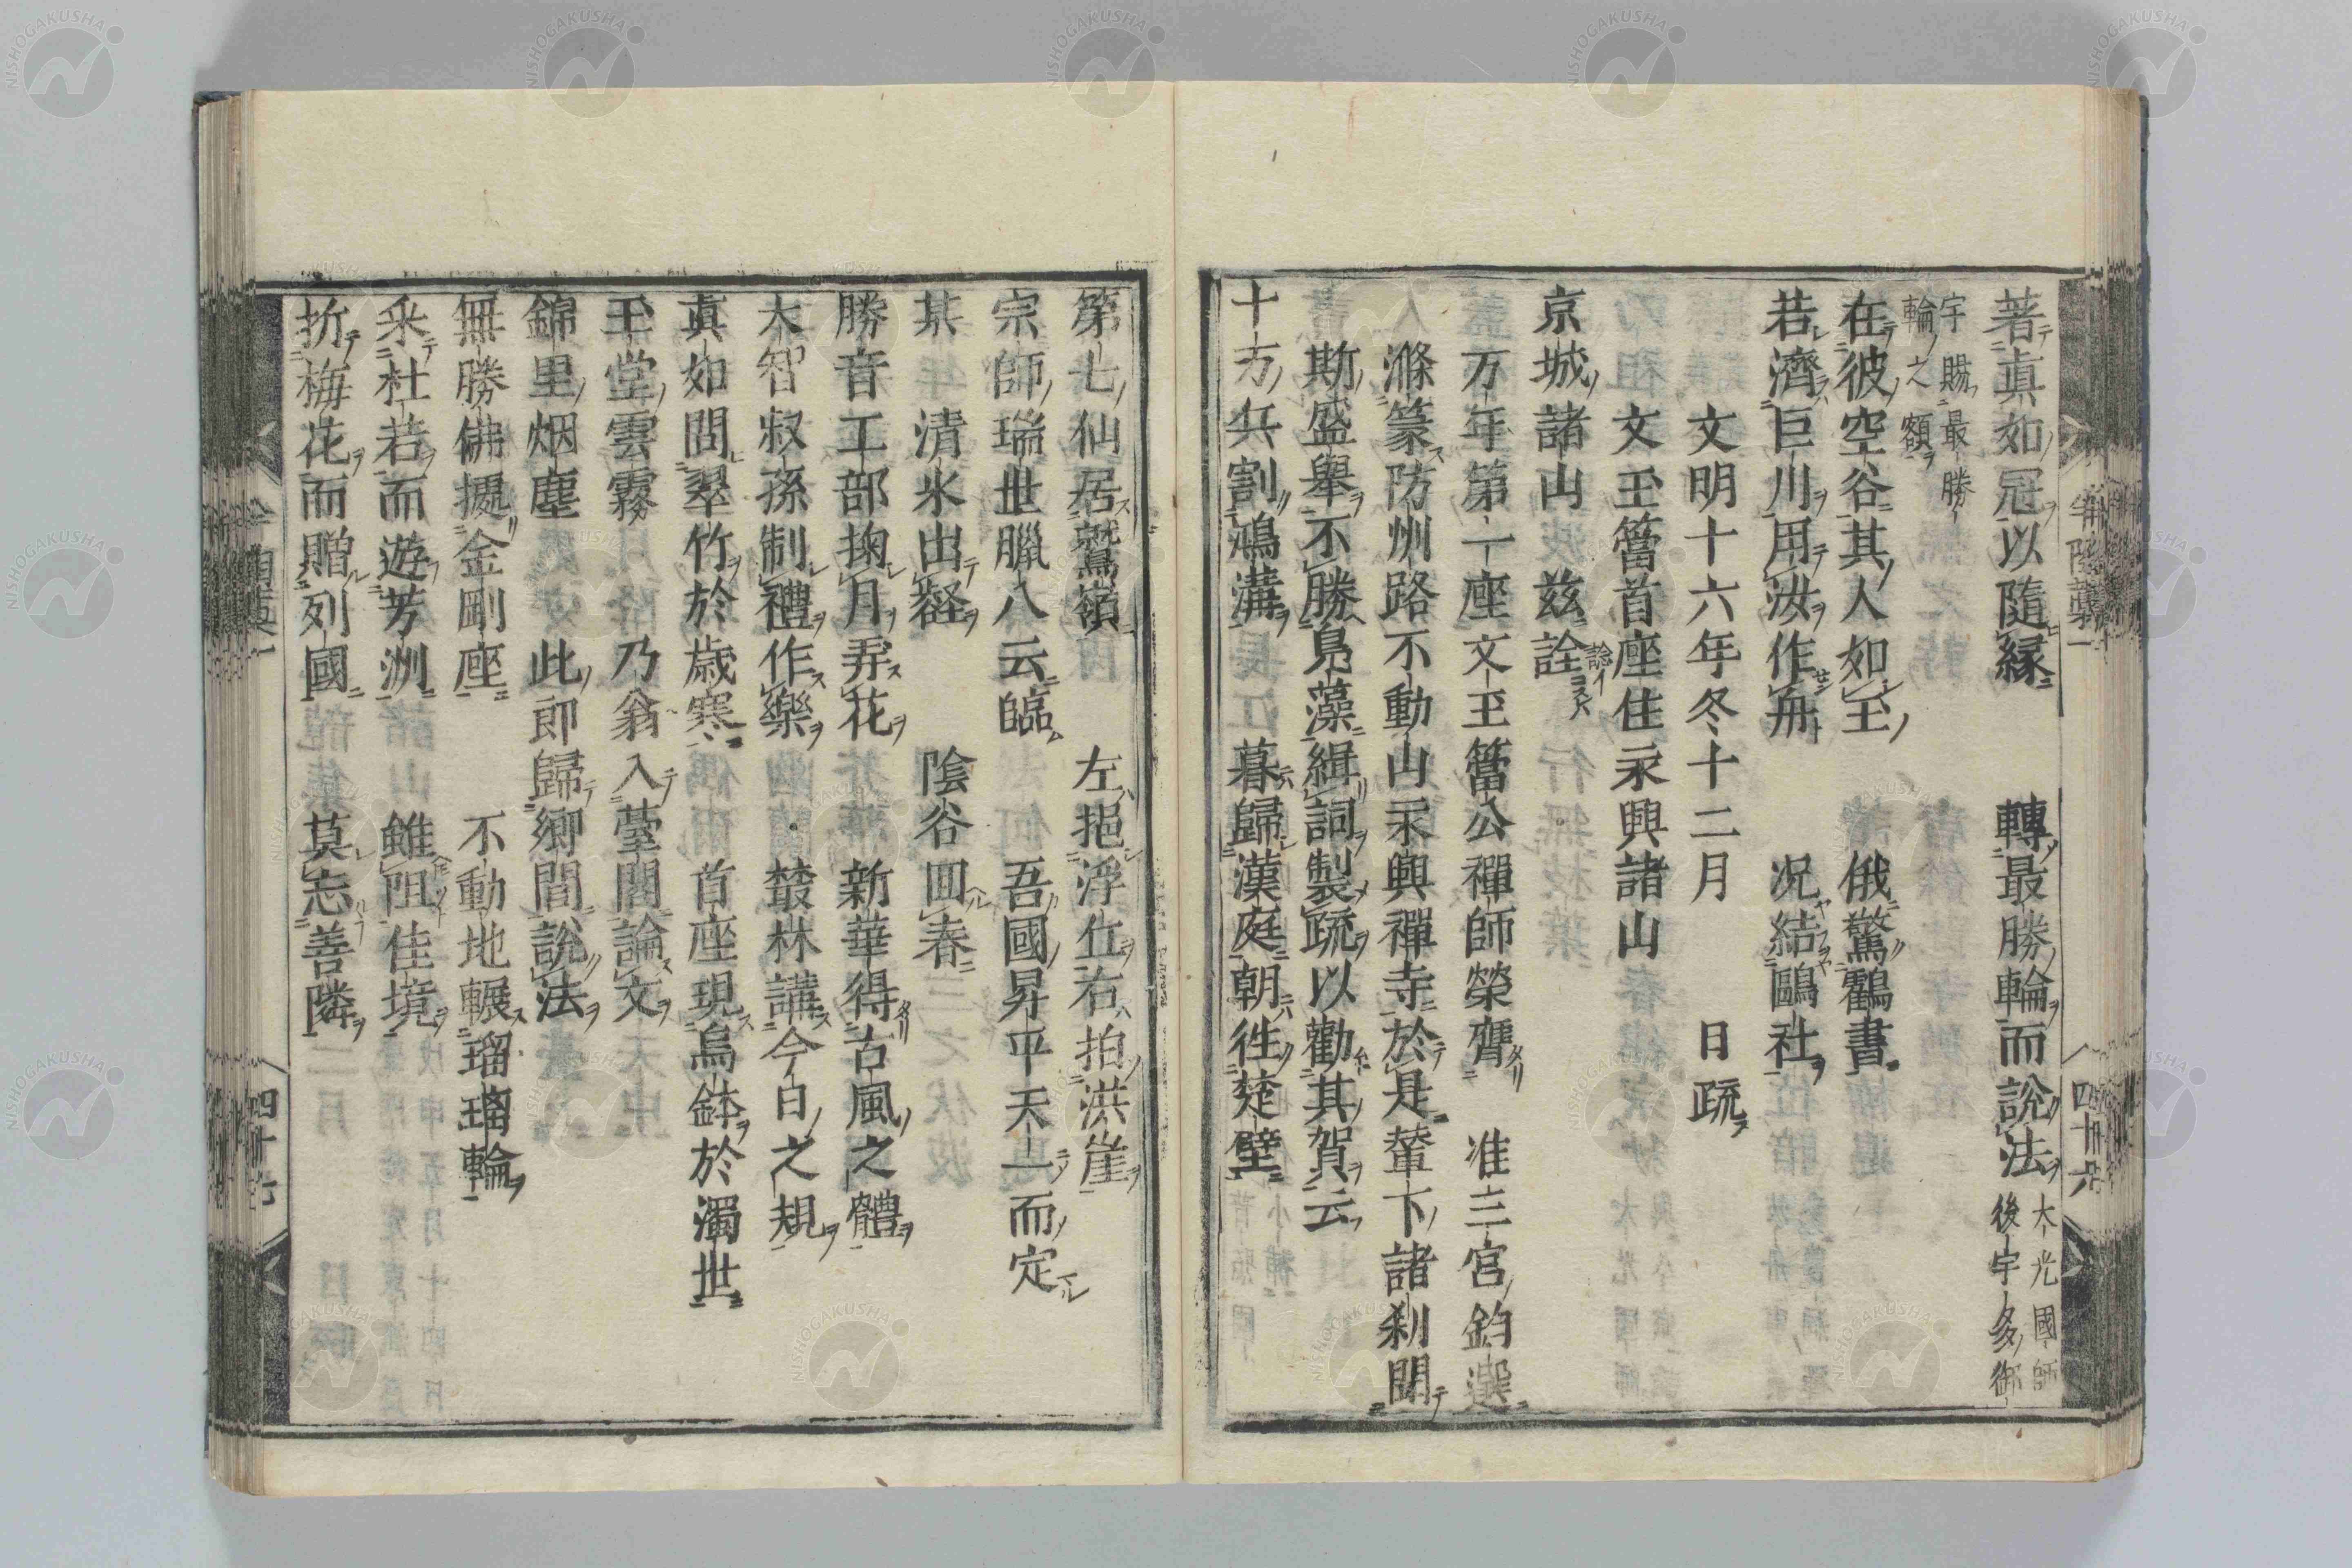 著真如冠以隨縁　轉最勝輪而說法 大光國師
後宇多御
宇賜最勝
輪之額
在彼空谷其人如玉　俄驚鸖書
若濟巨川用汝作舟　况結鷗社
文明十六年冬十二月　日疏
文玉簹首座住永興諸山
京城諸山　茲詮
万年第一座文玉簹公禪師榮膺　准三宮鈞選
滌篆防州路不動山永興禪寺於是輦下諸刹聞
斯盛舉不勝鳧藻緝詞製疏以勸其賀云
十方兵割鴻溝　暮歸漢庭朝徃楚壁
第七仙居鷲嶺　左挹浮丘右拍洪崖
宗師瑞世臘八云臨　吾國昇平天一而定
某　清氷出壑　陰谷回春
勝音工部掬月弄花　新華得古風之體
大智叔孫制禮作樂　叢林講今日之規
真如問翠竹於歳寒　首座現烏鉢於濁世
玉堂雲霧　乃翁入臺閣論文
錦里烟塵　此即歸鄉閭說法
無勝佛擾金剛座　不動地輾瑠璃輪
采杜若而遊芳洲　雖阻佳境
折梅花而贈列國　莫忘善隣
四十六